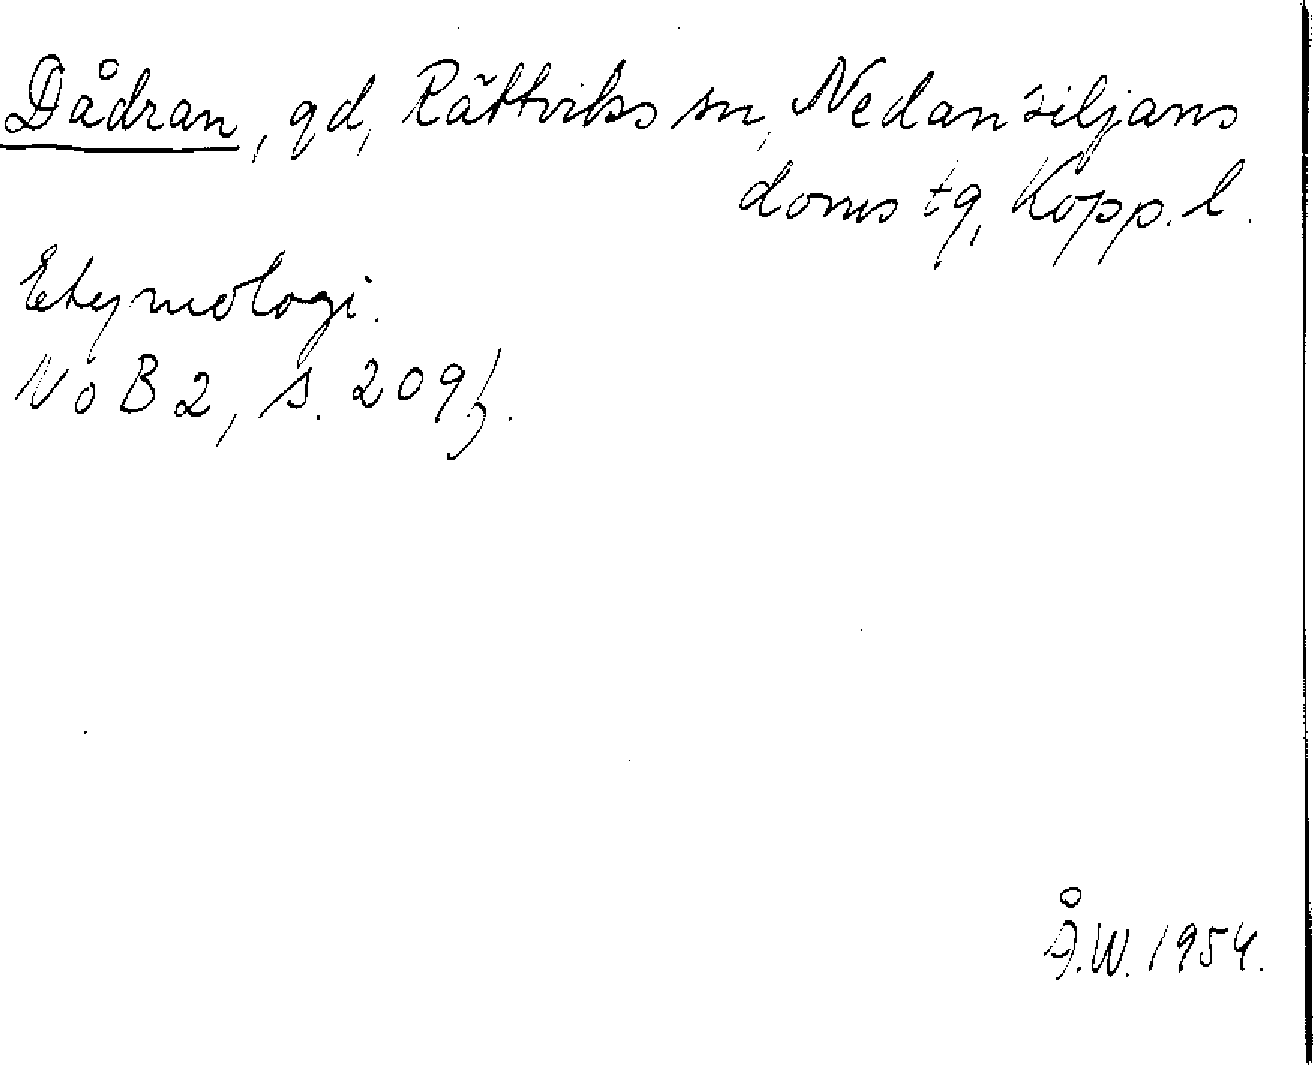 Dådran, gd, Rättviks sn, Nedansiljans
doms tg, Kopp. l.
Etymologi.
NoB 2, s. 209 f.
Å.W. 1954.